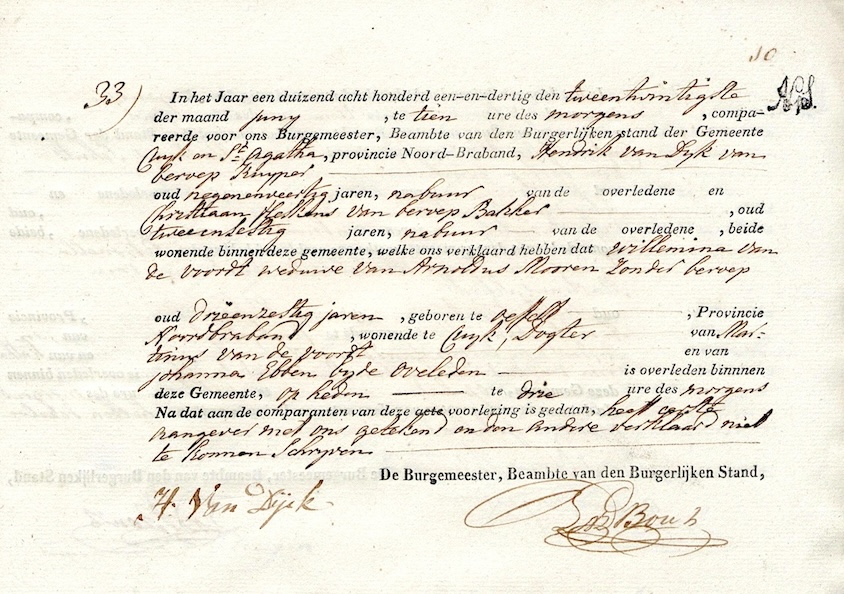 10
33)
In het Jaar een duizend acht honderd een-en-dertig den tweentwintigste
der maand juny , te tien ure des morgens , compa-
reerde voor ons Burgemeester, Beambte van den Burgerlijken stand der Gemeente
Cuyk en St. Agatha, provincie Noord-Braband, Hendrik van Dyk van
beroep Kuyper
oud negenenveertig jaren, nabuur van de overledene en
Christiaan van beroep Bakker , oud
tweensestig jaren, nabuur van de overledene , beide
wonende binnen deze gemeente, welke ons verklaard hebben dat Willemina van
de Voordt weduwe van Arnoldus Mooren Zonder beroep
oud drieenzestig jaren , geboren te Oefelt , Provincie
Noordbraband , wonende te Cuyk, Dogter van Mar-
tinus van de Voordt en van
Johanna Ebben byde oveleden is overleden binnnen
deze Gemeente, op heden te drie ure des morgens
Na dat aan de comparanten van deze acte voorlezing is gedaan, heeft eerste
aangever met ons getekend en den andere verklaard niet
te konnen Schryven
De Burgemeester, Beambte van den Burgerlijken Stand,
H. Van Dijck